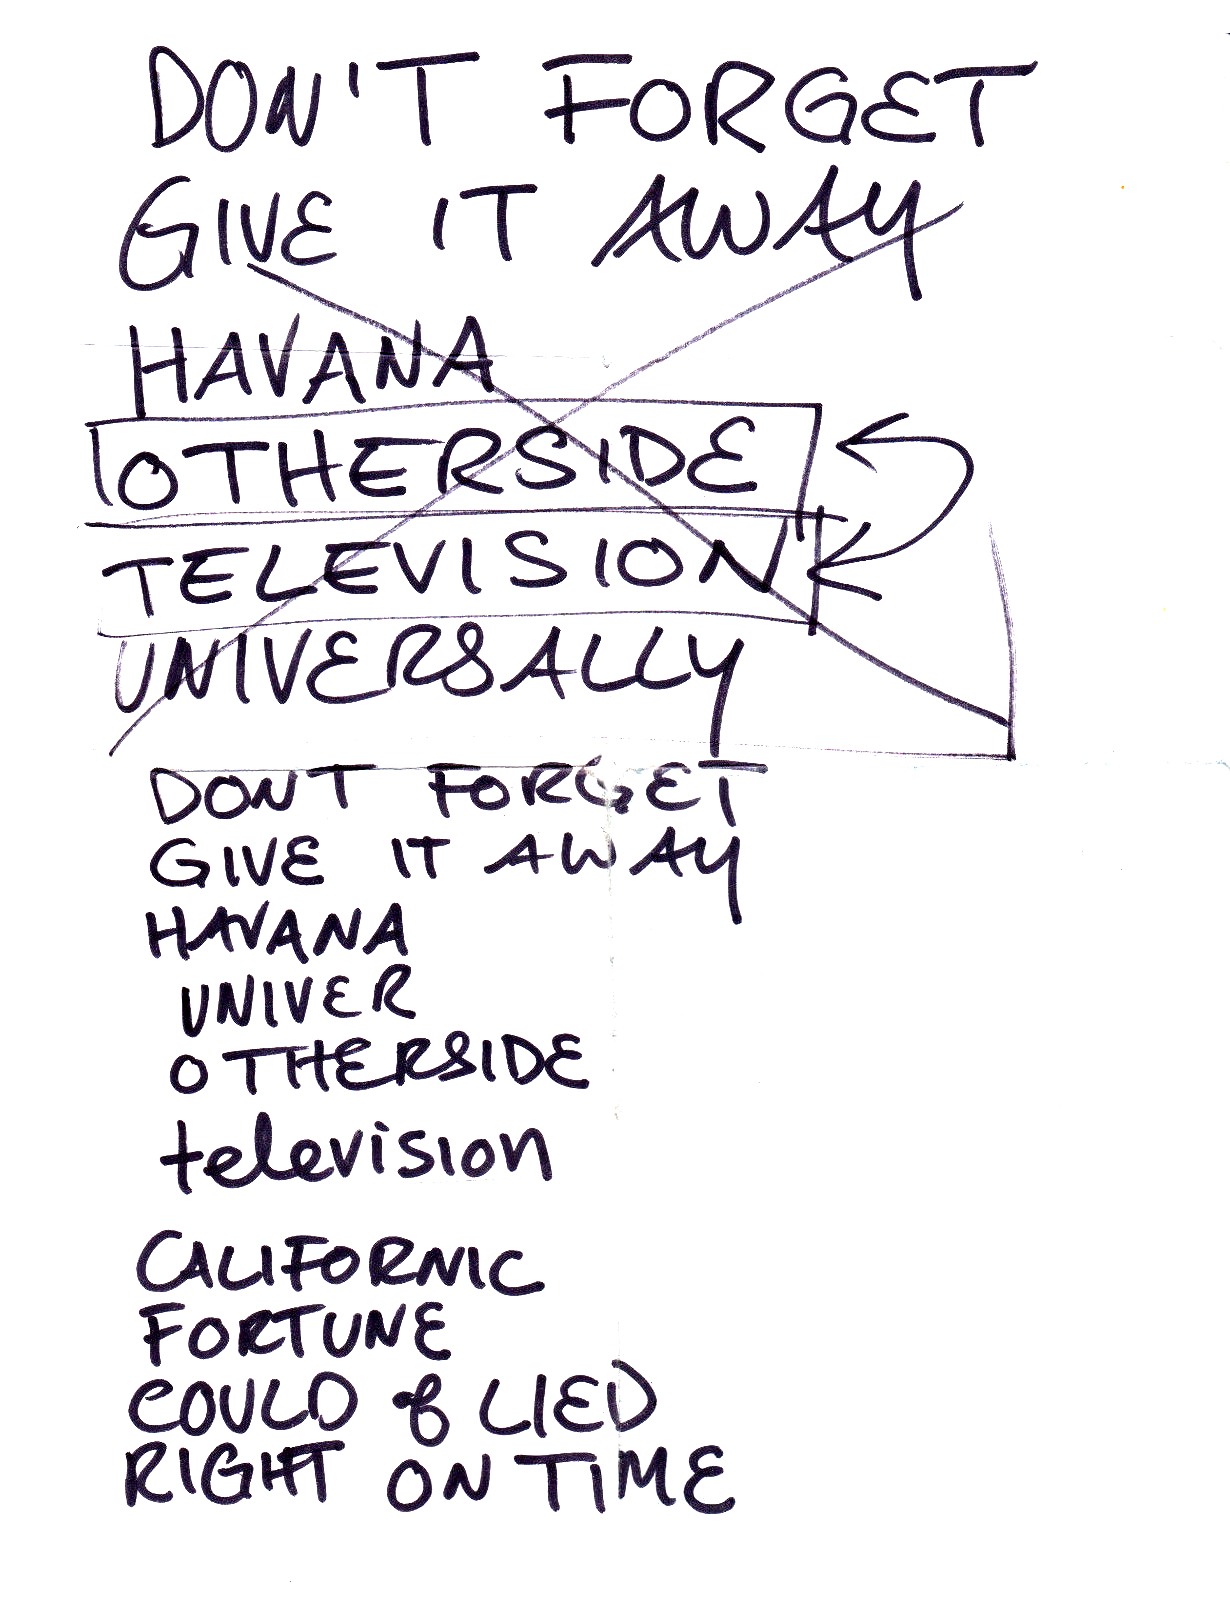 DON'T FORGET
GIVE IT AWAY
HAVANA
OTHERSIDE
TELEVISION
UNIVERSALLY
DONT FORGET
GIVE IT AWAY
HAVANA
UNIVER
OTHERSIDE
television
CALIFORNIC
FORTUNE
COULD of LIED
RIGHT ON TIME